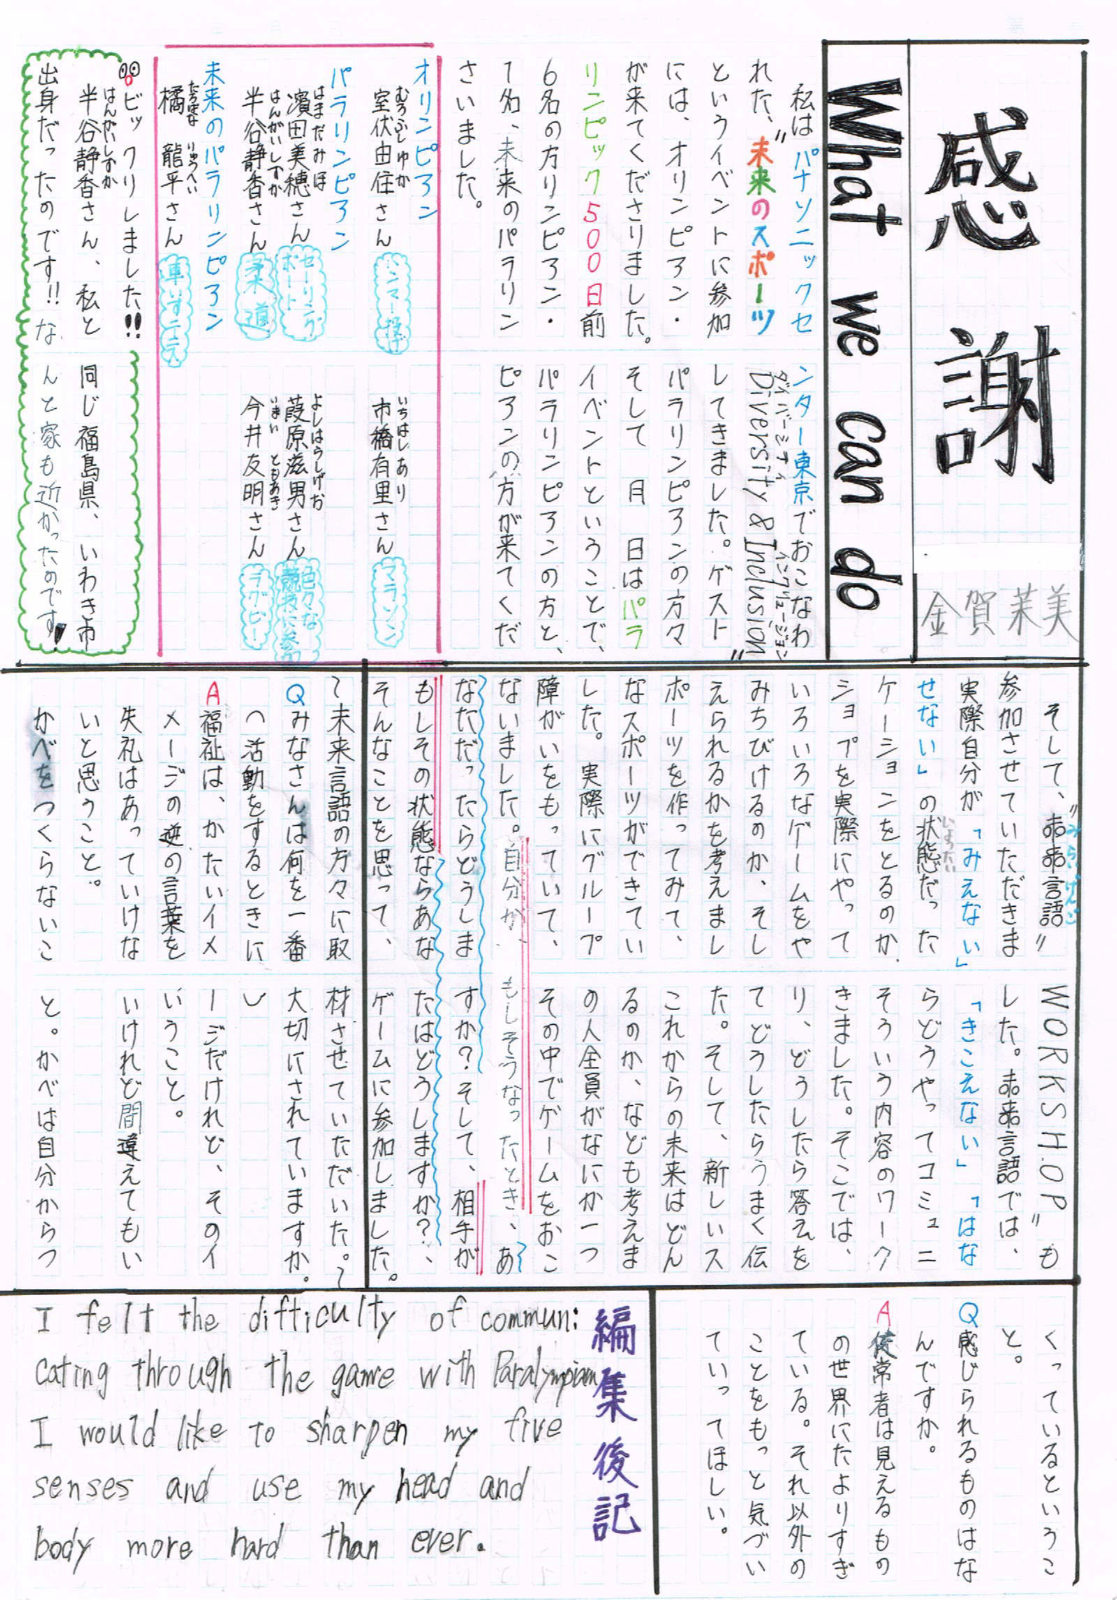 感謝
What we can do
金賀茉美
私はパナソニックセンター東京でおこなわ
れた、"未来のスポーツ Diversity & Inclusion"
ダイバーシティ インクリュージョン
というイベントに参加してきました。ゲスト
には、オリンピアン・パラリンピアンの方々
が来てくださりました。そして 月 日はパラ
リンピック500日前イベントということで、
6名の方リンピアン・パラリンピアンの方と、
1名、未来のパラリンピアンの方が来てくだ
さいました。
オリンピアン
室伏由佳さん ハンマー投げ 市橋有里さん マラソン
むろふしゆか いちはしあり
パラリンピアン
濱田美穂さん セーリング ボート 葭原滋男さん 色々な競技に参加
はまだみほ よしはらしげお
半谷静香さん 柔道 今井友明さん ラグビー
はんがいしずか いまい ともあき
未来のパラリンピアン
橘 龍平さん 車いすテニス
たちばな りゅうへい
ビックリしました!!
半谷静香さん、私と同じ福島県、いわき市
はんがいしずか
出身だったのです!!なんと家も近かったのです!
そして、"未来言語 WORKSHOP"も
みらいげんご
参加させていただきました。未来言語では、
実際自分が「みえない」「きこえない」「はな
せない」の状態だったらどうやってコミュニ
じょうたい
ケーションをとるのか、そういう内容のワーク
ショップを実際にやってきました。そこでは、
いろいろなゲームをやり、どうしたら答えを
みちびけるのか、そしてどうしたらうまく伝
えられるかを考えました。そして、新しいス
ポーツを作ってみて、これからの未来はどん
なスポーツができているのか、なども考えま
した。実際にグループの人全員がなにか一つ
障がいをもっていて、その中でゲームをおこ
ないました。自分が もしそうなったとき、あ
なただったらどうしますか?そして、相手が
もしその状態ならあなたはどうしますか?、
そんなことを思って、ゲームに参加しました。
〜未来言語の方々に取材させていただいた。〜
Qみなさんは何を一番大切にされていますか。
(活動をするときに)
A福祉は、かたいイメージだけれど、そのイ
メージの逆の言葉をいうこと。
失礼はあっていけないけれど間違えてもい
いと思うこと。
かべをつくらないこと。かべは自分からつ
くっているというこ
と。
Q感じられるものはな
んですか。
A健常者は見えるもの
の世界にたよりすぎ
ている。それ以外の
ことをもっと気づい
ていってほしい。
編集後記
I felt the difficulty of communi
cating through the game with Paralympian
I would like to sharpen my five
senses and use my head and
body more hard than ever.